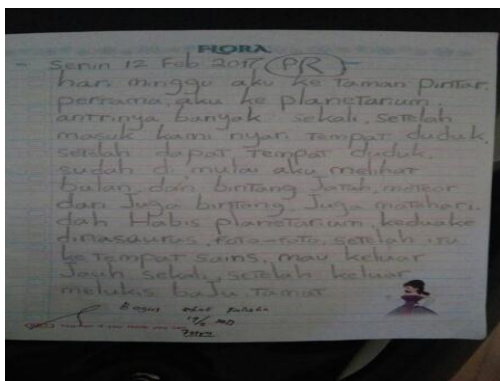 FLORA
- Senin 12 Feb 2017 (PR)
hari minggu aku ke Taman Pintar.
pertama, aku ke planetarium,
antrinya banyak sekali, setelah
masuk kami nyari tempat duduk,
setelah dapat tempat duduk,
sudah di mulai aku melihat
bulan, dan bintang Jatah, meteor
dan Juga bintang, Juga matahari.
dah Habis planetarium, keduake
dinasaurus, foto-foto, setelah itu
ke tempat sains, mau keluar
Jauh sekali, setelah keluar
melukis baju, Tamat
Bagus